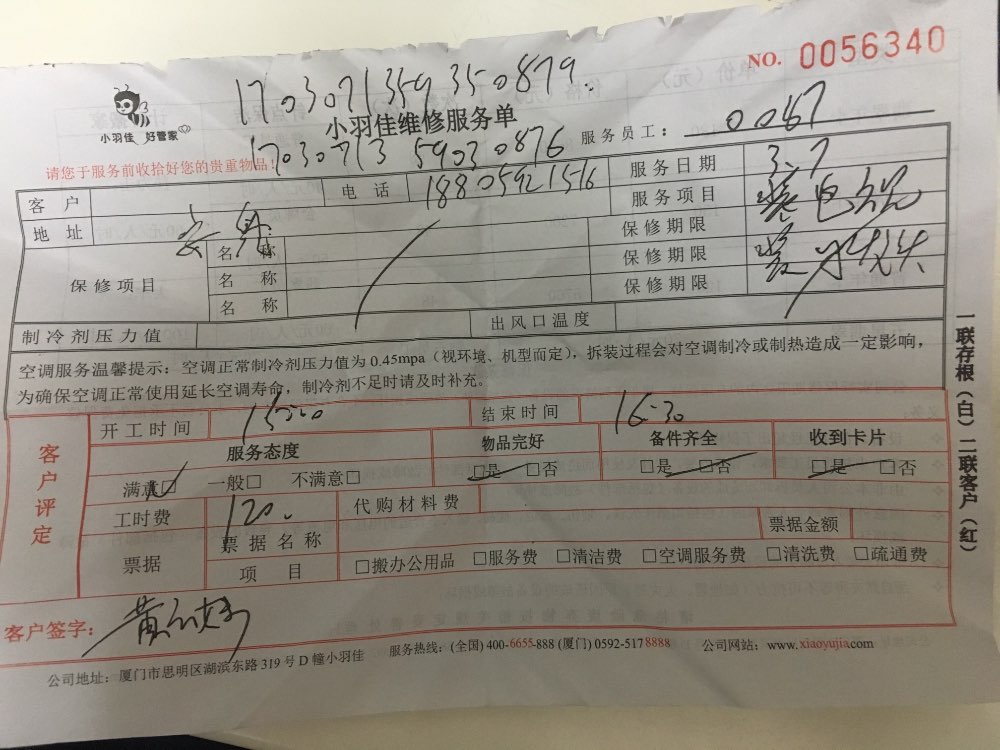 NO. 0056340
1703071359350879.
小羽佳 好管家
小羽佳维修服务单
17030713 59030876
服务员工: 0067
请您于服务前收拾好您的贵重物品!
客 户 电 话 18805921516 服务日期 3.7
地 址 服务项目
保修项目
名 称 保修期限
名 称 保修期限
名 称 保修期限
制冷剂压力值 出风口温度
空调服务温馨提示:空调正常制冷剂压力值为 0.45mpa(视环境、机型而定),拆装过程会对空调制冷或制热造成一定影响,
为确保空调正常使用延长空调寿命,制冷剂不足时请及时补充。
客户评定
开工时间 15:00 结束时间 16:30
服务态度 物品完好 备件齐全 收到卡片
满意□ 一般□ 不满意□ □是 □否 □是 □否 □是 □否
工时费 120. 代购材料费
票据 票据名称 票据金额
项 目 □搬办公用品 □服务费 □清洁费 □空调服务费 □清洗费 □疏通费
客户签字:
服务热线:(全国) 400-6655-888 (厦门) 0592-517 8888 公司网站:www.xiaoyujia.com
公司地址:厦门市思明区湖滨东路 319 号 D 幢小羽佳
一联存根(白)二联客户(红)